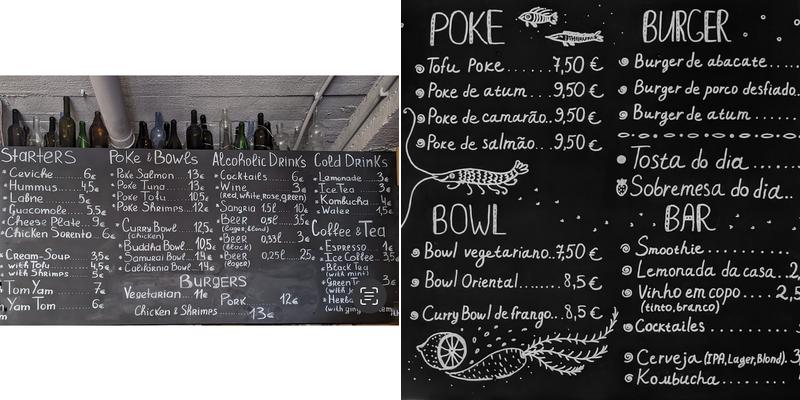 STARTERS
Ceviche 6€
Hummus 4,5€
Labne 5€
Guacomole 5,5€
Cheese Plate 9€
Chicken Sorento 6€
Cream-Soup 3,5€
with Tofu 4,5€
with Shrimps 5€
Tom Yam 7€
Yam Tom 6€
Poke & Bowls
Poke Salmon 13€
Poke Tuna 13€
Poke Tofu 10,5€
Poke Shrimps 12€
Curry Bowl 12,5€
(chicken)
Buddha Bowl 10,5€
Samurai Bowl 14€
California Bowl 14€
BURGERS
Vegetarian 11€
Pork 12€
Chicken & Shrimps 13€
Alcoholic Drinks
Cocktails 6€
Wine 3€
(red, white, rose, green)
Sangria 1,5l 10€
Beer 0,5l 3,5€
(lager, blond)
Beer 0,33l 3€
(black)
Beer 0,25l
(lager)
Cold Drinks
Lemonade 3€
Ice Tea 3€
Kombucha 4€
Water 1,5€
Coffee & Tea
Espresso 1€
Ice Coffee
Black Tea
(with mint)
Green T
(with
Herba
(with ging
POKE
Tofu Poke......7,50 €
Poke de atum...9,50 €
Poke de camarão..9,50 €
Poke de salmão...9,50 €
BOWL
Bowl vegetariano..7,50 €
Bowl Oriental........8,5 €
Curry Bowl de frango...8,5 €
BURGER
Burger de abacate....
Burger de porco desfiado.
Burger de atum......
Tosta do dia......
Sobremesa do dia..
BAR
Smoothie........
Lemonada da casa..2,
Vinho em copo....2,5
(tinto, branco)
Cocktailes....
Cerveja (IPA, Lager, Blond). 3
Kombucha.......